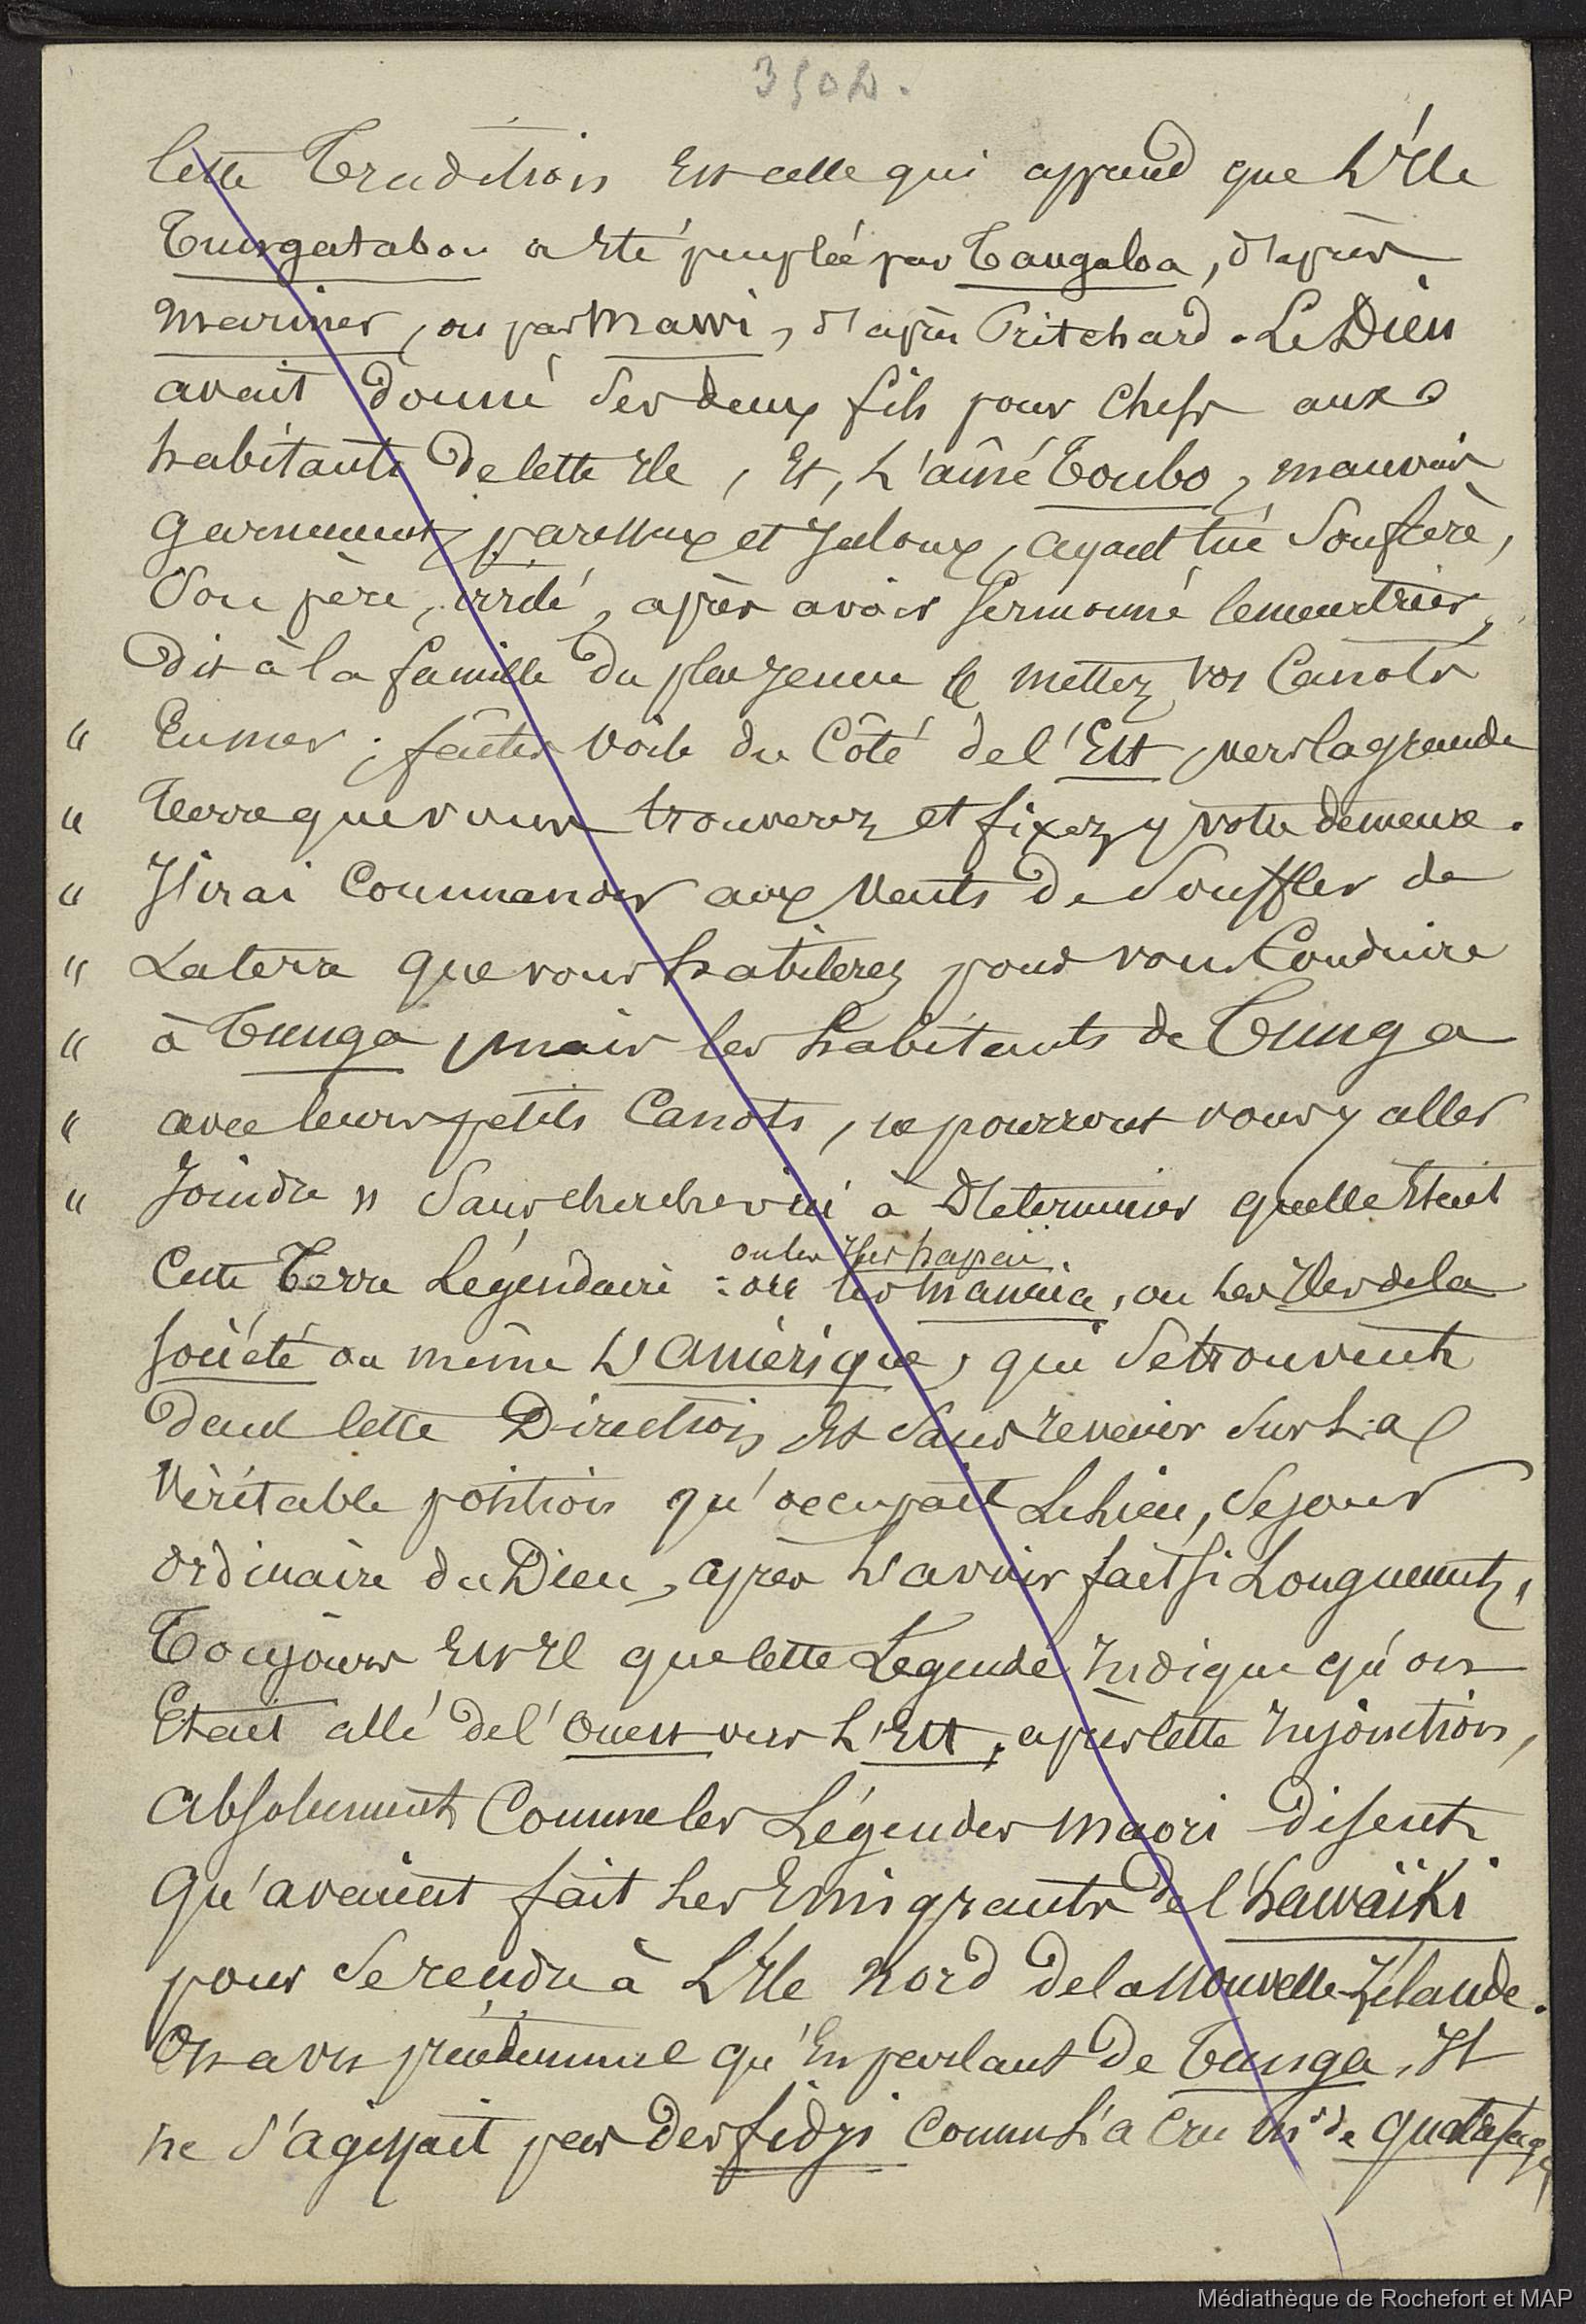 3502.
Cette Tradition Est celle qui apprend que L'Ile
Tungatabou a Eté peuplée par Tangaloa, d'après
Mariner, ou par Mawi, d'après Pritchard. Le Dieu
avait donné Ses deux fils pour Chefs aux
habitants de Cette Ile, Et, L'aîné Toubo, mauvais
garnement, paresseux et Jaloux, ayant tué Son frère,
Son père, irrité, après avoir Sermonné le meurtrier,
Dit à la famille du plus Jeune " mettez vos Canots
" En mer ; faites voile du Côté de l'Est, vers la grande
" Terre que vous trouverez et fixez y votre demeure.
" J'irai Commander aux Vents de Souffler de
" La terre que vous habiterez pour vous Conduire
" à Tunga, mais les habitants de Tunga
" avec leurs petits Canots, ne pourront vous y aller
" Joindre " Sans chercher ici à Déterminer quelle Etait
ou les Iles hapaii
Cette Terre Légendaire : ou les Manaia, ou Les Iles de la
Société ou même L'Amérique, qui Se trouvent
dans Cette Direction, Et Sans revenir Sur La
Véritable position qu'occupait Le lieu, Séjour
Ordinaire du Dieu, après L'avoir fait Si Longuement,
Toujours Est Il que Cette Légende Indique qu'on
Etait allé de l'Ouest vers L'Est, après Cette Injonction,
Absolument Comme les Légendes Maori disent
Qu'avaient fait Les Emigrants de l'hawaïki
pour Se rendre à L'Ile Nord de la Nouvelle-Zélande.
On a vu précédemment qu'En parlant de Tunga, Il
ne S'agissait pas des fidji Comme L'a Cru Mr de Quatrefages